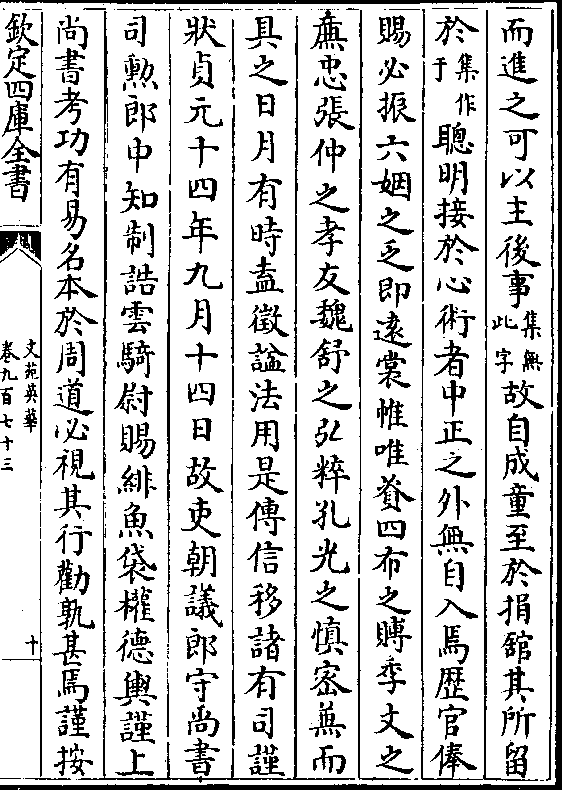 而進之可以主後事集無此字故自成童至於捐舘其所留
於集作于聰明接於心術者中正之外無自入焉歴官俸
賜必振六姻之乏即逺裳帷唯資四布之賻季文之
亷忠張仲之孝友魏舒之弘粹孔光之慎宻兼而
具之日月有時盍徵諡法用是傳信移諸有司謹
狀貞元十四年九月十四日故吏朝議郎守尚書
司勲郎中知制誥雲騎尉賜緋魚袋權德輿謹上
尚書考功有易名本於周道必視其行勸孰甚焉謹按
欽定四庫全書
文苑英華
卷九百七十三
十